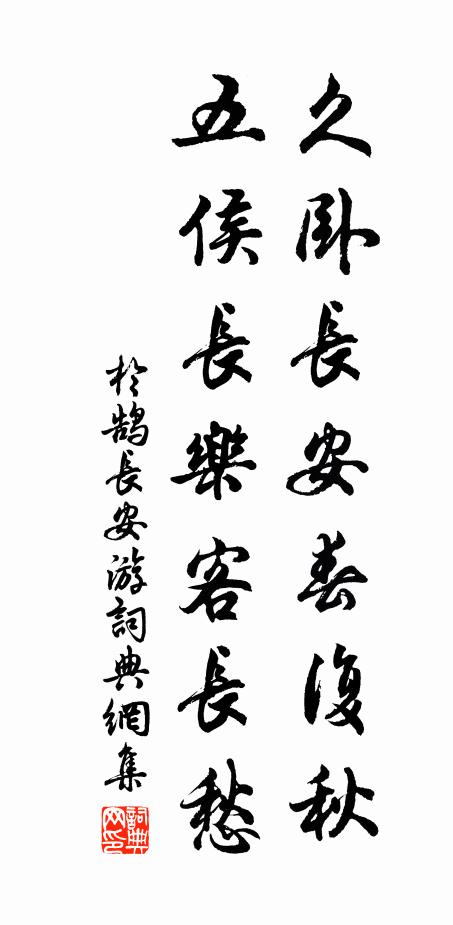 久卧長安春復秋
五侯長樂客長愁
於鵠長安游詞典網集
詞典网印